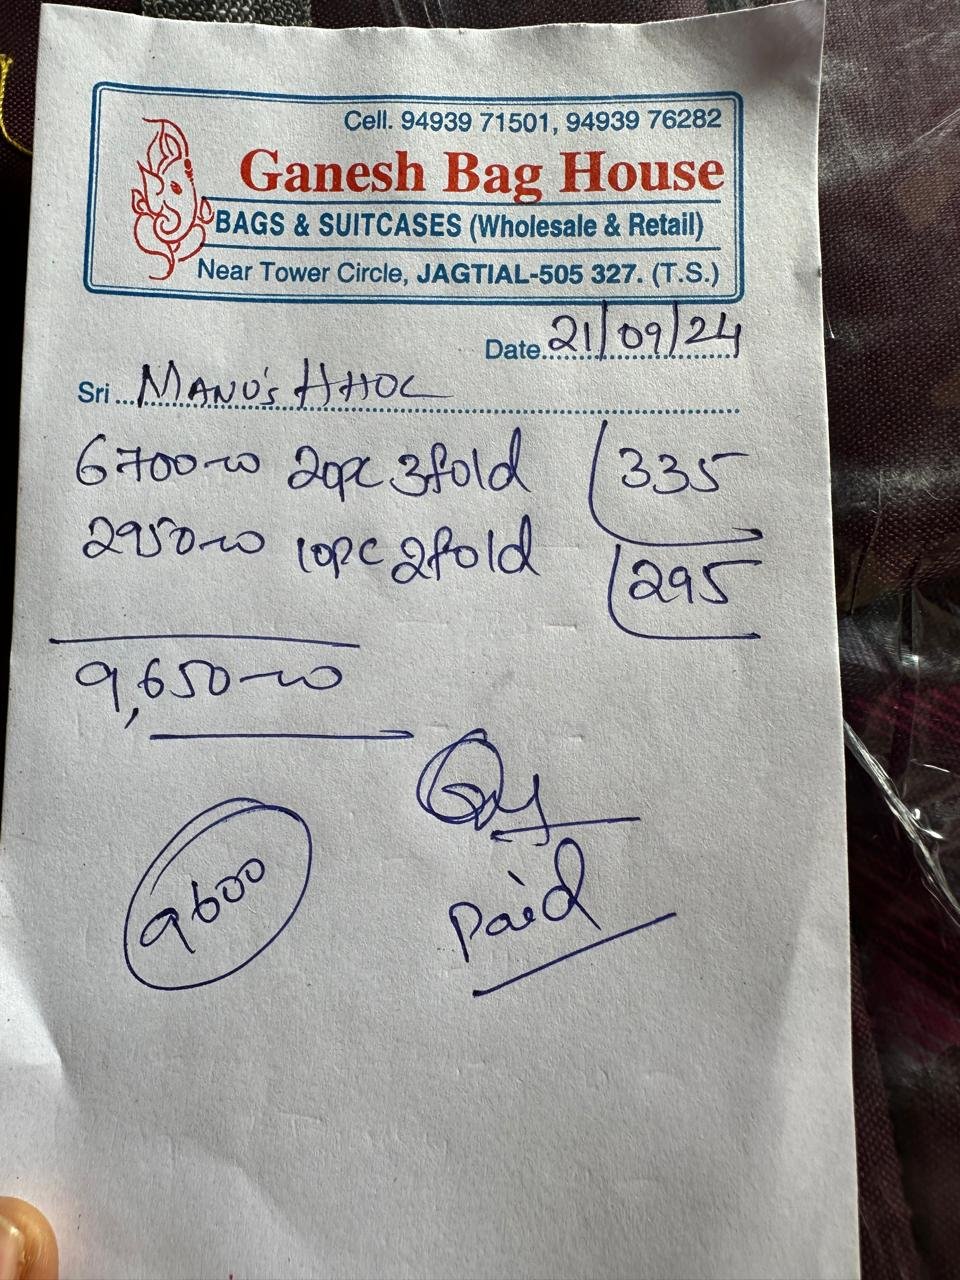 Cell. 94939 71501, 94939 76282
Ganesh Bag House
BAGS & SUITCASES (Wholesale & Retail)
Near Tower Circle, JAGTIAL-505 327. (T.S.)
Date 21/09/24
Sri... MANU'S
6700-00 20pc 3fold 335
2950-00 10pc 2fold 295
9,650-00
9600
Paid